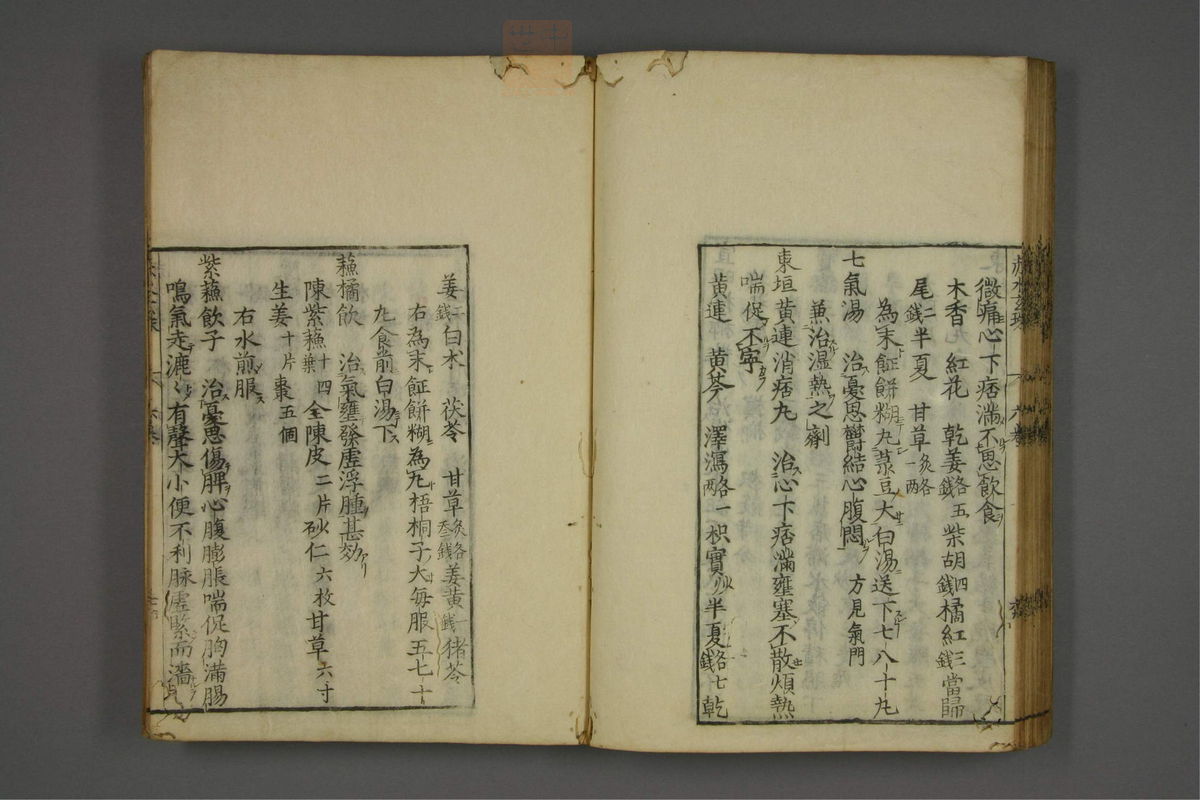 微痛心下痞滿不思飲食
木香 紅花 乾姜各五錢 柴胡四錢 橘紅三錢 當歸
尾二錢 半夏 甘草炙各一兩
為末飪餅糊丸菉豆大白湯送下七八十丸
七氣湯 治憂思欝結心腹悶 方見氣門
兼治湿熱之劑
東垣黃連消痞丸 治心下痞滿壅塞不散煩熱
喘促不寧
黃連 黃芩 澤瀉各一兩 枳實炒 半夏各七錢 乾
姜二錢 白朮 茯苓 甘草炙各三錢 姜黃一錢 猪苓
右為末飪餅糊為丸梧桐子大每服五七十
丸食前白湯下
蘓橘飲 治氣壅發虛浮腫甚効
陳紫蘓十四葉 全陳皮二片 砂仁六枚 甘草六寸
生姜十片 棗五個
右水煎服
紫蘓飲子 治憂思傷脾心腹膨脹喘促胸滿腸
鳴氣走漉〻有聲大小便不利脉虛緊而濇